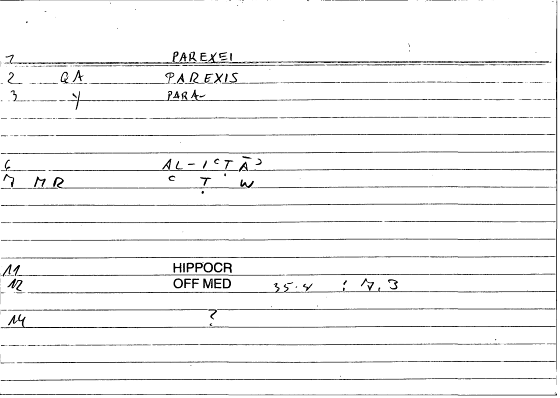 1 PAREXEI
2 QA PAREXIS
3 Y PARA~
6 AL-I‘ṬĀ’
7 MR ‘ Ṭ W
11 HIPPOCR
12 OFF MED 35.4 : 7,3
14 ?